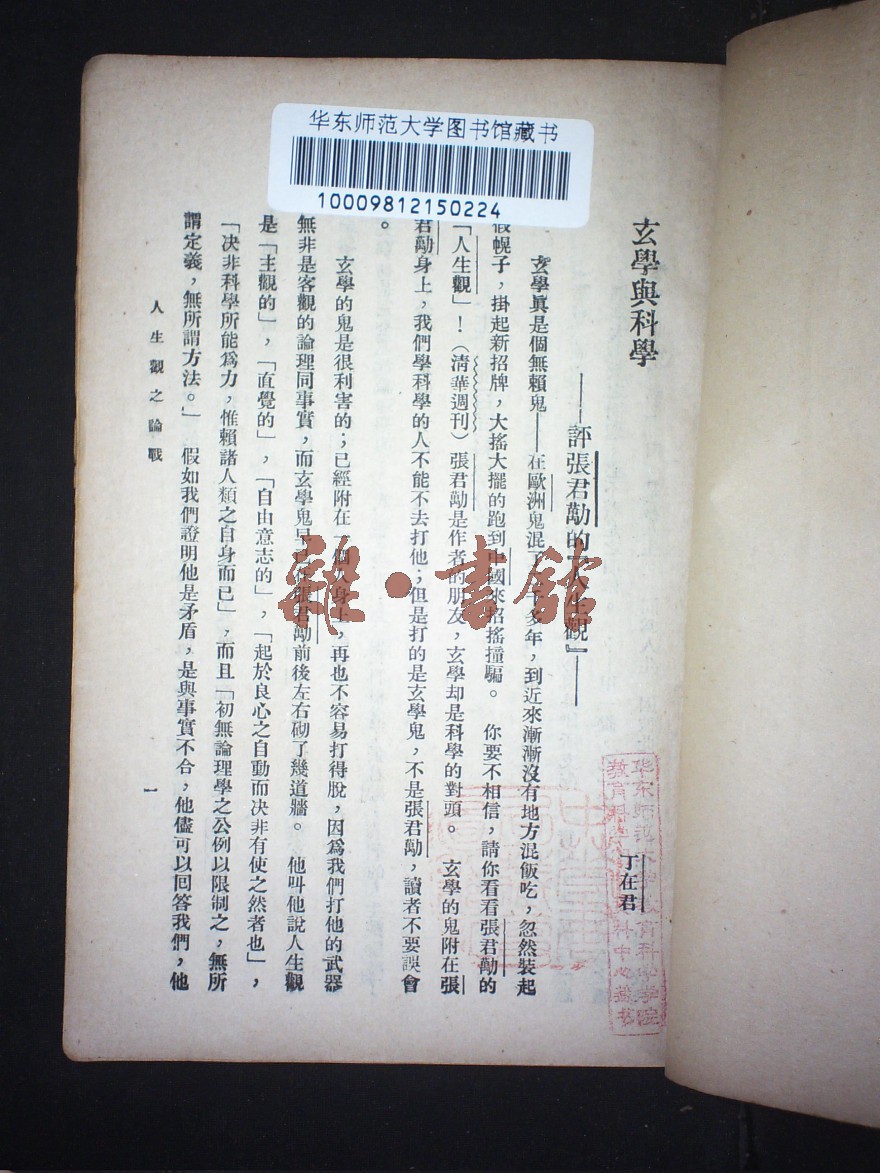 华东师范大学图书馆藏书
10009812150224
玄學與科學
——評張君勱的『人生觀』——
丁在君
玄學眞是個無賴鬼——在歐洲鬼混了二千多年,到近來漸漸沒有地方混飯吃,忽然裝起
假幌子,掛起新招牌,大搖大擺的跑到中國來招搖撞騙。 你要不相信,請你看看張君勱的
「人生觀」!(清華週刊)張君勱是作者的朋友,玄學却是科學的對頭。 玄學的鬼附在張
君勱身上,我們學科學的人不能不去打他;但是打的是玄學鬼,不是張君勱,讀者不要誤會
。
玄學的鬼是很利害的;已經附在一個人身上,再也不容易打得脫,因爲我們打他的武器
無非是客觀的論理同事實,而玄學鬼早已在張君勱前後左右砌了幾道牆。 他叫他說人生觀
是「主觀的」,「直覺的」,「自由意志的」,「起於良心之自動而決非有使之然者也」,
「決非科學所能爲力,惟賴諸人類之自身而已」,而且「初無論理學之公例以限制之,無所
謂定義,無所謂方法。」 假如我們證明他是矛盾,是與事實不合,他儘可以回答我們,他
人生觀之論戰
一
雜·書館